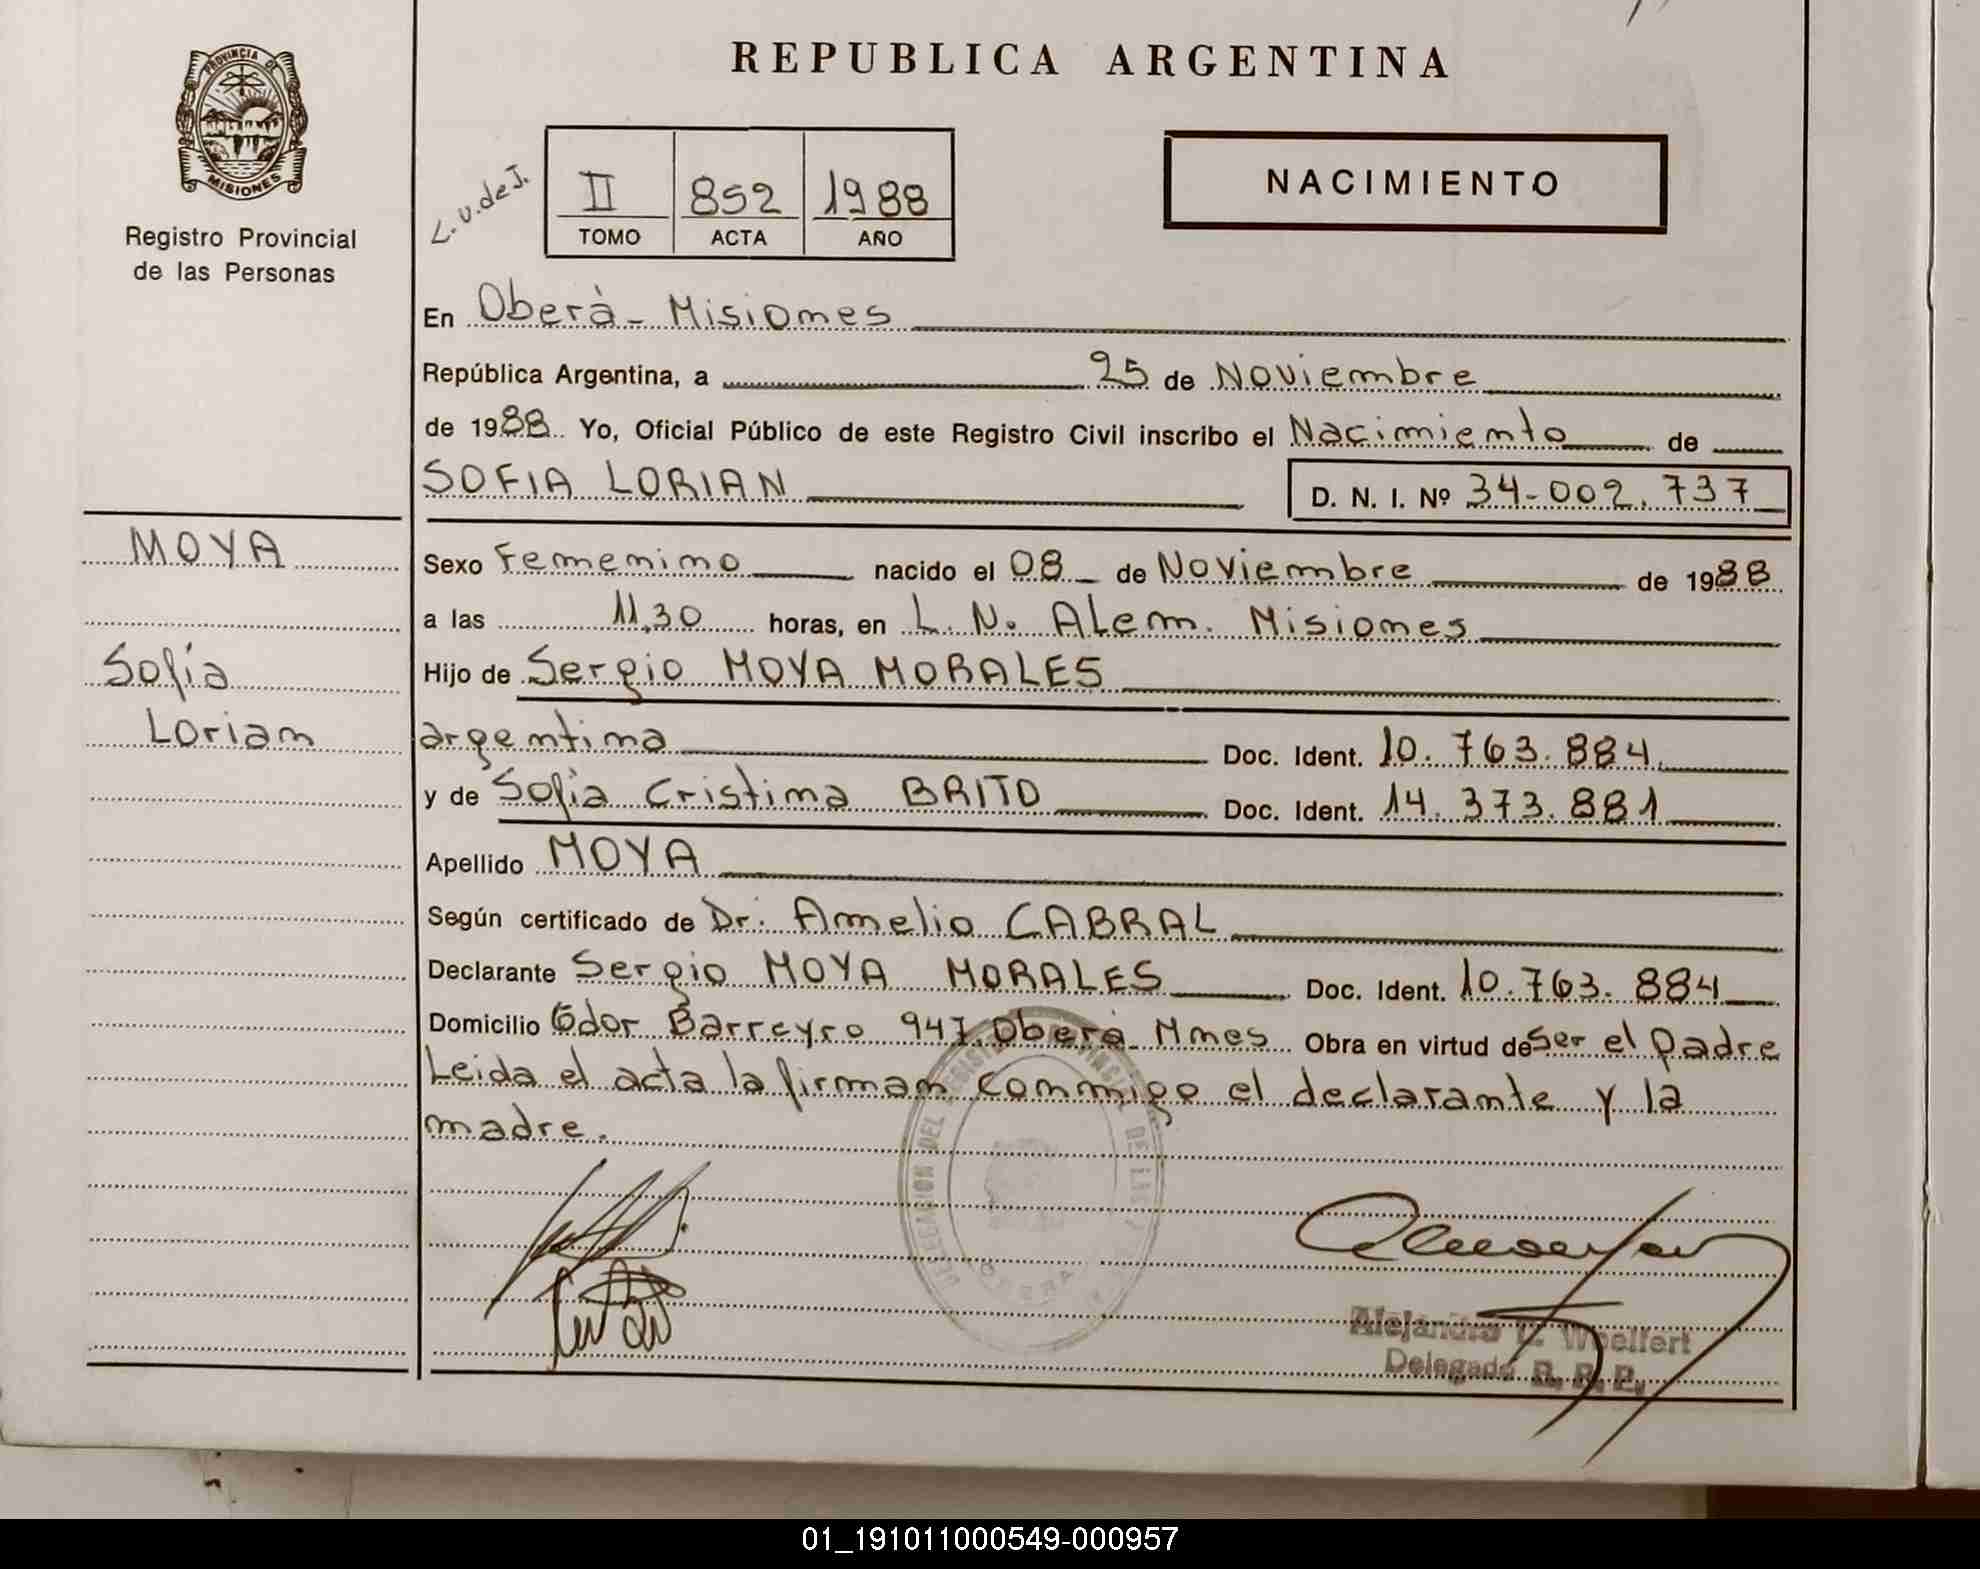 REPUBLICA ARGENTINA
PROVINCIA DE
MISIONES
Registro Provincial
de las Personas
L.U. de J.
II 852 1988
TOMO ACTA AÑO
NACIMIENTO
En Oberà - Misiones
República Argentina, a 25 de Noviembre
de 1988. Yo, Oficial Público de este Registro Civil inscribo el Nacimiento de
SOFIA LORIAN D. N. I. Nº 34-002.737
MOYA
Sofía
Lorian
Sexo Femenino nacido el 08 de Noviembre de 1988
a las 11,30 horas, en L. N. ALem. Misiones
Hijo de Sergio MOYA MORALES
argentina Doc. Ident. 10.763.884
y de Sofia Cristina BRITO Doc. Ident. 14.373.881
Apellido MOYA
Según certificado de Dr. Amelio CABRAL
Declarante Sergio MOYA MORALES Doc. Ident. 10.763.884
Domicilio Gdor Barreyro 947. Oberà - Mnes Obra en virtud de Ser el padre
Leida el acta la firman conmigo el declarante y la
madre.
DELEGACION DEL REGISTRO PROVINCIAL DE LAS
OBERA
Alejandro Woelfert
Delegado R. R. P.
01_191011000549-000957